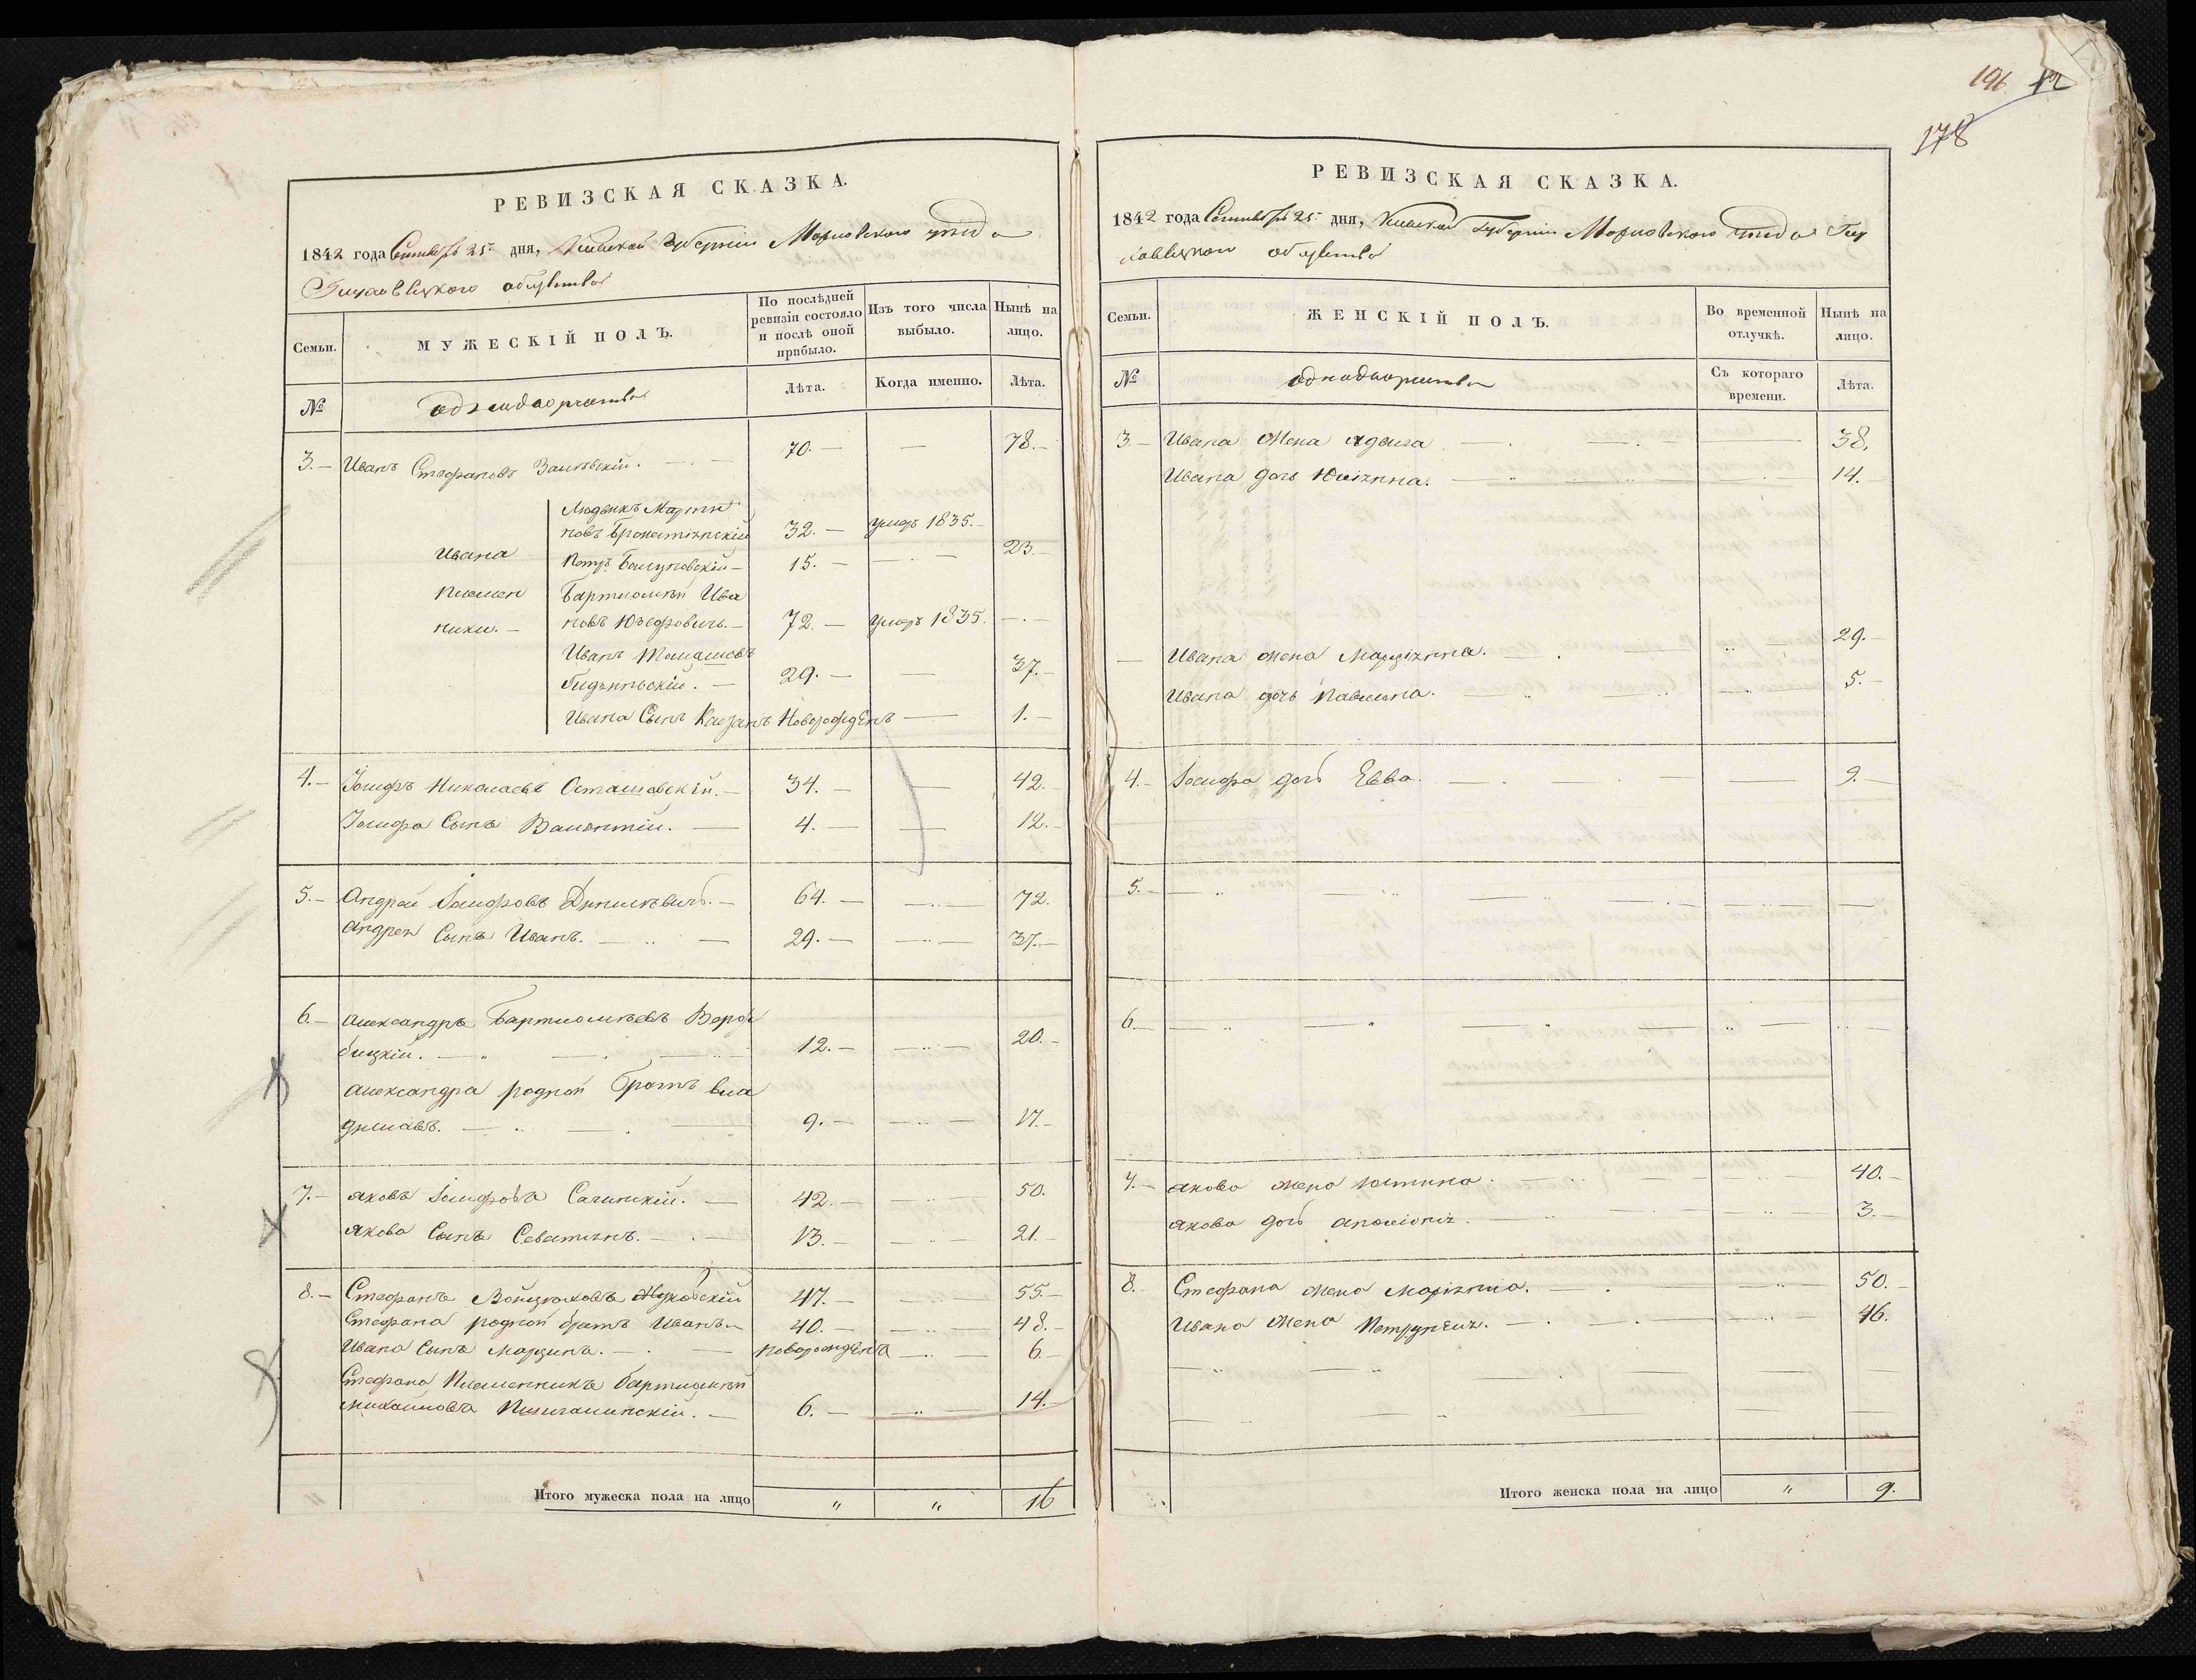 196 12
178
РЕВИЗСКАЯ СКАЗКА.
1842 года Сентября 25 дня, Киевской Губернии уезда
общества
Семьи.
МУЖЕСКІЙ ПОЛЪ.
По послѣдней ревизіи состояло и послѣ оной прибыло.
Изъ того числа выбыло.
Нынѣ на лицо.
№
однодворчества
Лѣта.
Когда именно.
Лѣта.
3. Иванъ Стефановъ 70. — 78.
Людвикъ Марти
новъ 32. умеръ 1835.
Ивана Петръ 15. — 23.
племен Бартломѣй Ива
ники. новъ Юзефовичъ. 72. умеръ 1835. —
Иванъ Томашевъ
29. — 37.
Ивана Сынъ Новорожденъ — 1.
4. Іосифъ Николаевъ Осташевскій. 34. — 42.
Іосифа Сынъ Валентій. 4. — 12.
5. Андрей Іосифовъ 64. — 72.
Андрея Сынъ Иванъ. 29. — 37.
6. Александръ Бартломѣевъ Верж
бицкій. 12. — 20.
Александра родной братъ Вла
диславъ. 9. — 17.
7. Яковъ Іосифовъ 42. — 50.
Якова Сынъ 13. — 21.
8. Стефанъ Войцѣховъ Жуковскій 47. — 55.
Стефана родной братъ Иванъ 40. — 48.
Ивана Сынъ Марцинъ. новорожденъ — 6.
Стефана Племенникъ Бартломѣй
Михайловъ 6. — 14.
Итого мужеска пола на лицо " " 16
РЕВИЗСКАЯ СКАЗКА.
1842 года Сентября 25 дня, Киевской Губернии уезда
общества
Семьи.
ЖЕНСКІЙ ПОЛЪ.
Во временной отлучкѣ.
Нынѣ на лицо.
№
однодворчества
Съ котораго времени.
Лѣта.
3. Ивана жена Ядвига — 38.
Ивана дочь — 14.
— Ивана жена Маріянна. — 29.
Ивана дочь Павлина. — 5.
4. Іосифа дочь Евва. — 9.
5. —
6. —
7. Якова жена Юстина — 40.
Якова дочь Аполіонія. — 3.
8. Стефана жена Маріянна. — 50.
Ивана жена — 46.
Итого женска пола на лицо " 9.